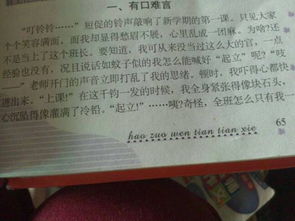 一、有口难言
“叮铃铃……”短促的铃声敲响了新学期的第一课。只见大家
个个笑容满面，而我却显得愁眉不展，心里乱成一团麻。为啥？还
不是当上了这个班长。要知道，我可从来没当过这么大的官，一点
经验也没有，况且说话如蚊子似的我怎么能喊好“起立”呢？“吱
……”老师开门的声音立即打乱了我的思绪。顿时，我吓得心都快
迸出来。“上课！”在这千钧一发的时候，我全身紧张得像块石头，
心沉坠得像灌满了冷铅。“起立！”……咦？奇怪，全班怎么只有我一
65
hao zuo wen tian tian xie